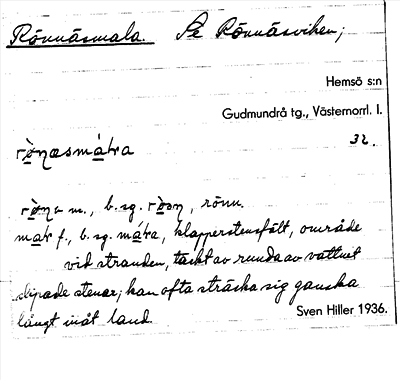 Rönnäsmala. Se Rönnäsviken;
Hemsö s:n
Gudmundrå tg., Västernorrl. l.
32.
rò̱ŋæsmá̱ƚra
rò̱ŋa m., b. sg. rò̱ǝŋ, rönn.
ma̱ƚr f., b. sg. má̱ƚra, klapperstensfält, område
vid stranden, täckt av runda av vattnet
slipade stenar; kan ofta sträcka sig ganska
långt inåt land.
Sven Hiller 1936.